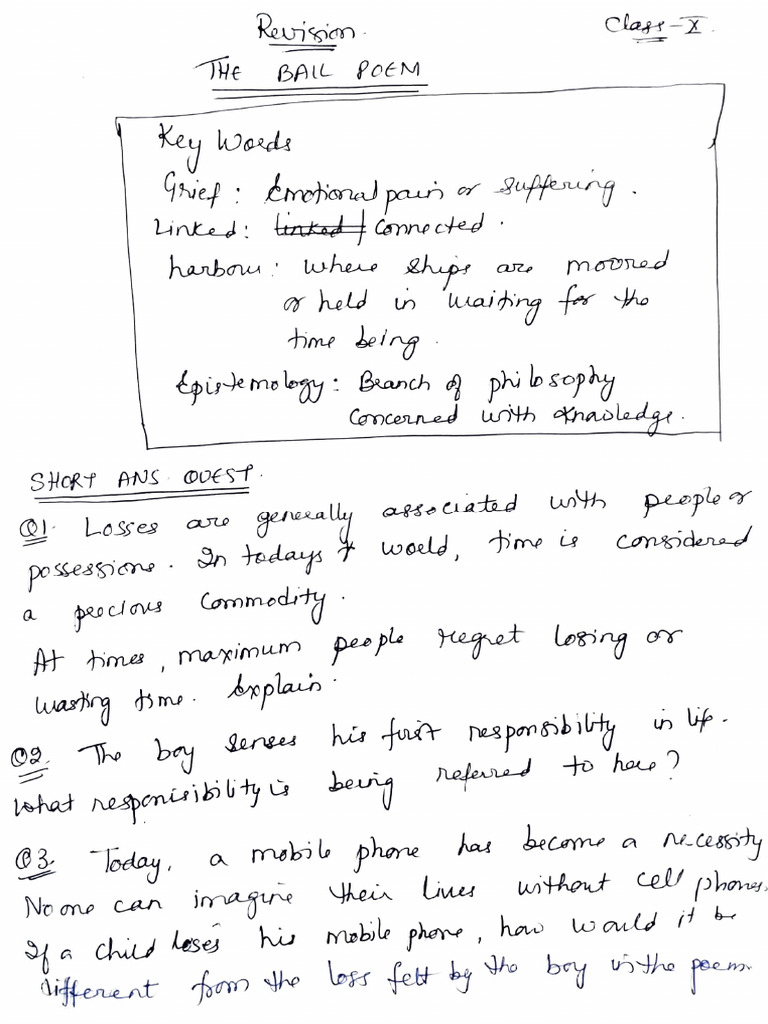 Revision.
Class-X.
THE BALL POEM
Key Words
Grief: Emotional pain or suffering.
Linked: linked/ connected.
harbour: where ships are moored
or held in waiting for the
time being.
Epistemology: Branch of philosophy
concerned with knowledge.
SHORT ANS. QUEST.
Q1. Losses are generally associated with people or
possessions. In todays world, time is considered
a precious commodity.
At times, maximum people regret losing or
wasting time. Explain.
Q2. The boy senses his first responsibility in life.
What responsibility is being referred to here?
Q3. Today, a mobile phone has become a necessity
No one can imagine their lives without cell phones.
If a child loses his mobile phone, how would it be
different from the loss felt by the boy in the poem.